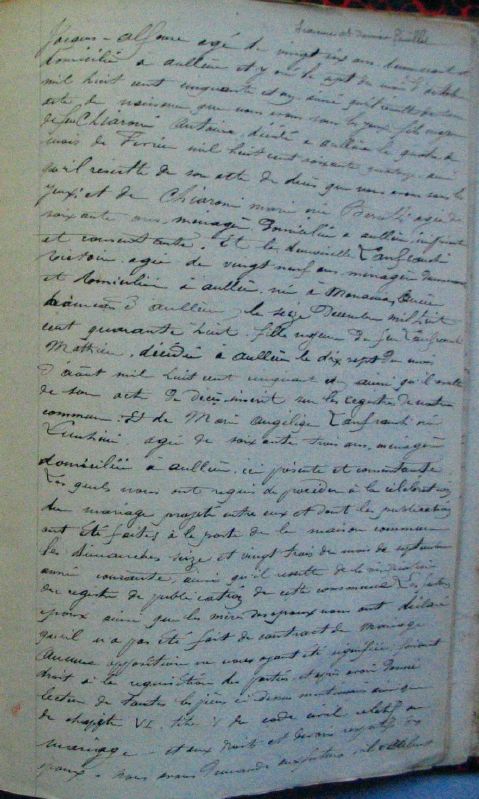 Jacques-alfonse agé de vingt six ans demeurant et
domicilié a aullène et y né le sept du mois d'octobre
mil huit cent cinquante et un, ainsi qu'il resulte de son
acte de naissance que nous avons sous les yeux, fils majeur
de feu Chiaroni Antoine, décédé a aullène le quatre du
mois de Fevrier mil huit cent soixante quatorze, ainsi
qu'il resulte de son acte de décès que nous avons sous les
yeux; et de Chiaroni Marie née agée de
soixante ans, ménagère domiciliée a aullène, ici présente
et consentante. Et la demoiselle Lanfranchi
Victoire agée de vingt neuf ans, ménagère demeurant
et domiciliée à aullène, née à
d'aullène, le seize Decembre mil huit
cent quarante huit, fille majeure de feu Lanfranchi
Mathieu, décédé a aullène le dix sept du mois
d'août mil huit cent cinquante ainsi qu'il resulte
de son acte de décès inscrit sur les registres de cette
commune; Et de Marie Angélique Lanfranchi née
agée de soixante trois ans, ménagère
domiciliée à aullène, ici présente et consentante
Lesquels nous ont requis de procéder à la célébration
du mariage projeté entre eux et dont les publications
ont été faites à la porte de la maison commune
les dimanches seize et vingt trois du mois de septembre
année courante, ainsi qu'il resulte de
du registre de publications de cette commune Les futurs
epoux ainsi que les mères des epoux nous ont déclaré
qu'il n'a pas été fait de contrat de mariage
Aucune opposition ne nous ayant été signifiée, faisant
droit à la requisition des parties, et après avoir donné
lecture de toutes les pièces ci dessus mentionnées ainsi que
du chapitre VI, titre V du code civil relatif au
mariage et aux droits et devoirs respectifs des
epoux. Nous avons demandé aux futurs